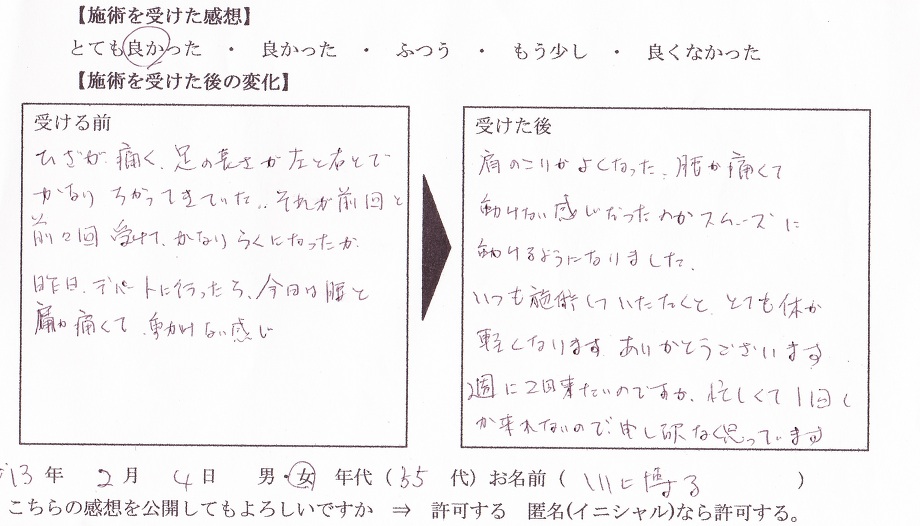 【施術を受けた感想】
とても良かった ・ 良かった ・ ふつう ・ もう少し ・ 良くなかった
【施術を受けた後の変化】
受ける前
ひざが痛く、足の長さが左と右とで
かなりちがってきていた。それが前回と
前々回受けて、かなりらくになったが
昨日、デパートに行ったら、今日は腰と
肩が痛くて動けない感じ
受けた後
肩のこりがよくなった、腰が痛くて
動けない感じだったのがスムーズに
動けるようになりました。
いつも施術していただくと、とても体が
軽くなります ありがとうございます
週に2回来たいのですが、忙しくて1回し
か来れないので申し訳なく思っています
13年 2月 4日 男・女 年代(55代)お名前( )
こちらの感想を公開してもよろしいですか ⇒ 許可する 匿名(イニシャル)なら許可する。